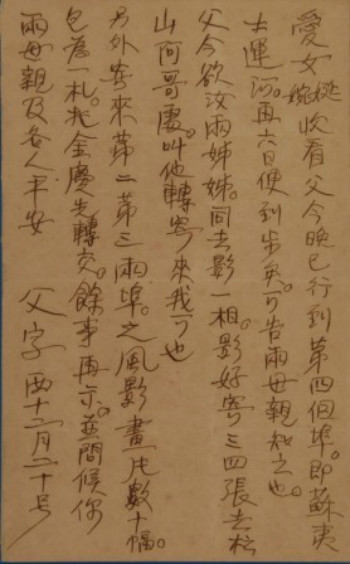 愛女收看父今晚已行到第四個埠。即蘇夷
士運河。再六日便到步矣。可告兩母親知之也。
父今欲汝兩姊妹。同去影一相。影好寄三四張去松
山阿哥處。叫他轉寄來我可也
另外寄來第二第三兩埠。之風影畫片數十幅。
包為一札。托金慶先轉交。餘事再示。並問候你
兩母親及各人平安 父字 西十二月二十号